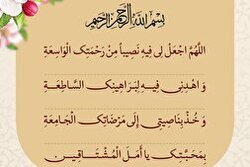 بِسْمِ اللهِ الرَّحْمنِ الرَّحِيمِ
اللَّهُمَّ اجْعَلْ لِی فِیهِ نَصِیباً مِنْ رَحْمَتِک الْوَاسِعَةِ
وَ اهْدِنِی فِیهِ لِبَرَاهِینِک السَّاطِعَةِ
وَ خُذْ بِنَاصِیَتِی إِلَی مَرْضَاتِک الْجَامِعَةِ
بِمَحَبَّتِک یا أَمَلَ الْمُشْتَاقِینَ